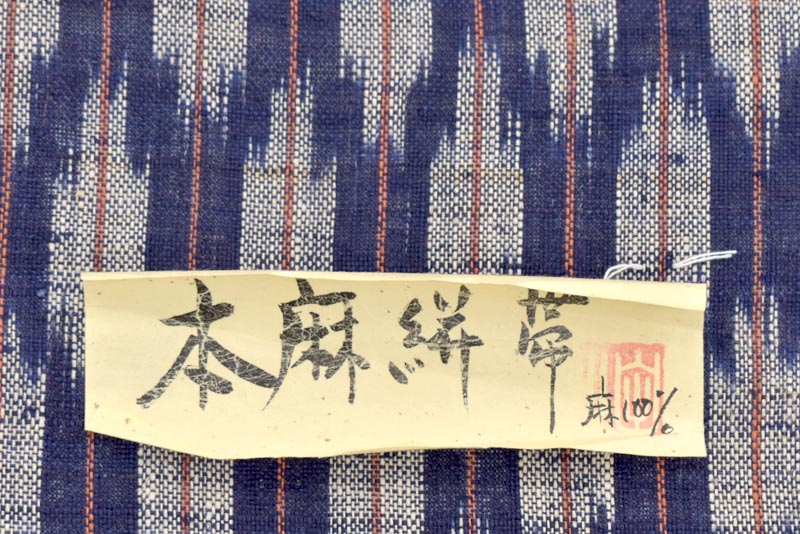 本麻絣帯
麻100%